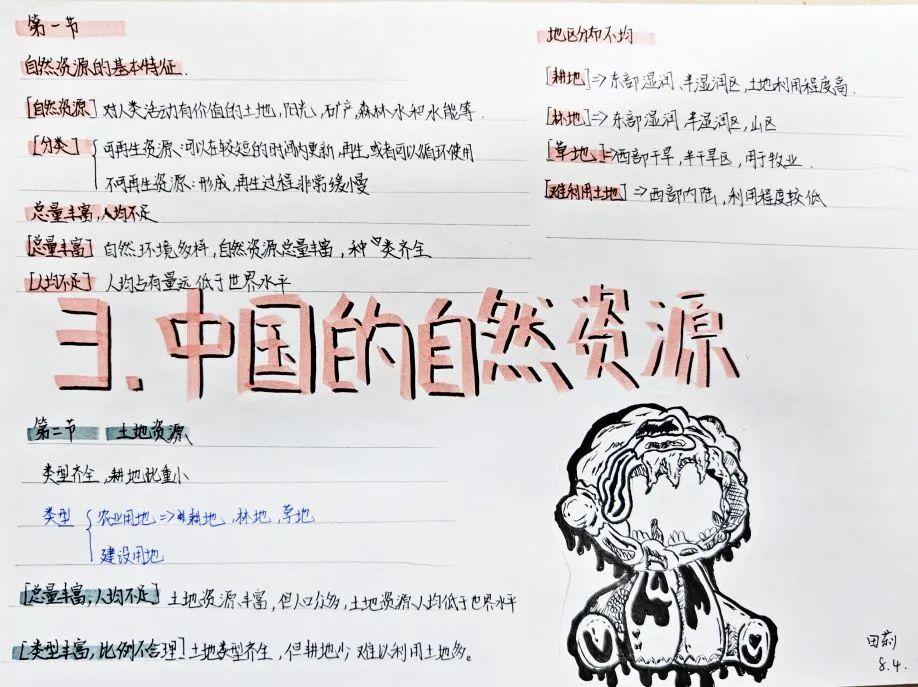 第一节
自然资源的基本特征.
[自然资源] 对人类活动有价值的土地,阳光,矿产,森林,水和水能等.
[分类] { 可再生资源:可以在较短的时间内更新,再生,或者可以循环使用
不可再生资源:形成,再生过程非常缓慢
总量丰富,人均不足
[总量丰富] 自然环境多样,自然资源总量丰富,种类齐全
[人均不足] 人均占有量远低于世界水平
地区分布不均
[耕地]⇒东部湿润、半湿润区,土地利用程度高.
[林地]⇒东部湿润、半湿润区,山区
[草地]⇒西部干旱,半干旱区,用于牧业.
[难利用土地]⇒西部内陆,利用程度较低
3.中国的自然资源
第二节 土地资源
类型齐全,耕地比重小
类型 { 农业用地⇒耕地,林地,草地
建设用地
[总量丰富,人均不足] 土地资源丰富,但人口众多,土地资源人均低于世界水平
[类型丰富,比例不合理] 土地类型齐全,但耕地少,难以利用土地多。
田莉
8.4.